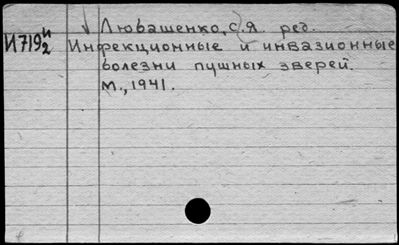 Люващенко, С.Я. ред.
И719 и/2 Инфекционные и инвазионные
болезни пушных зверей.
М., 1941.